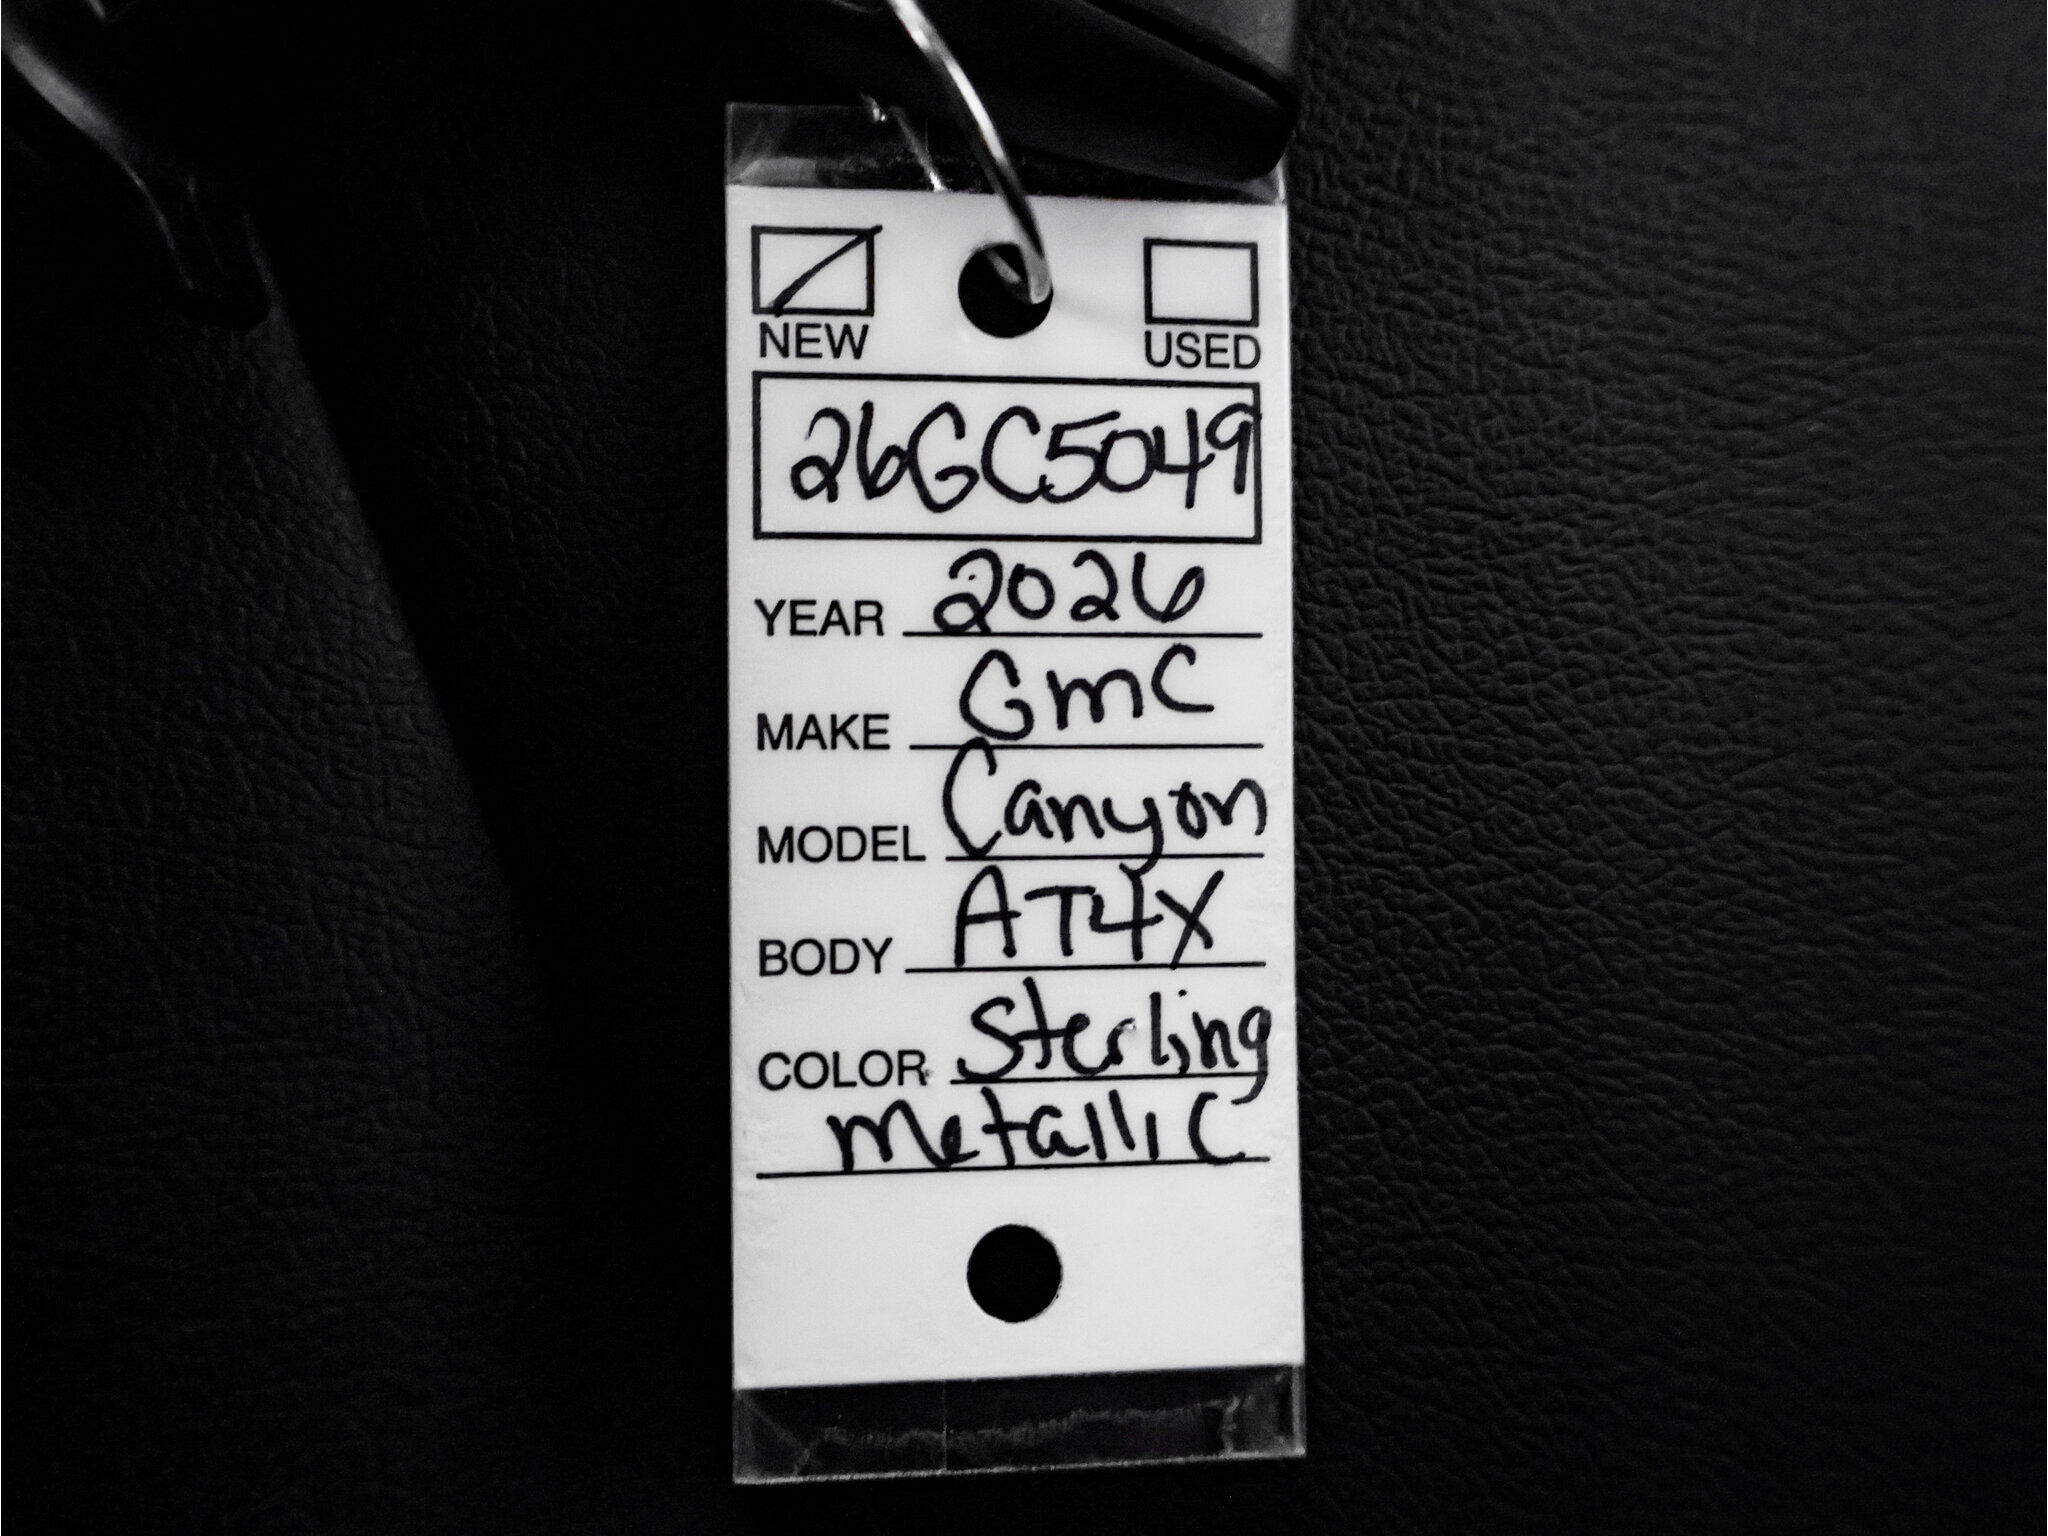 NEW USED
26GC5049
YEAR 2026
MAKE GMC
MODEL Canyon
BODY AT4X
COLOR Sterling
metallic